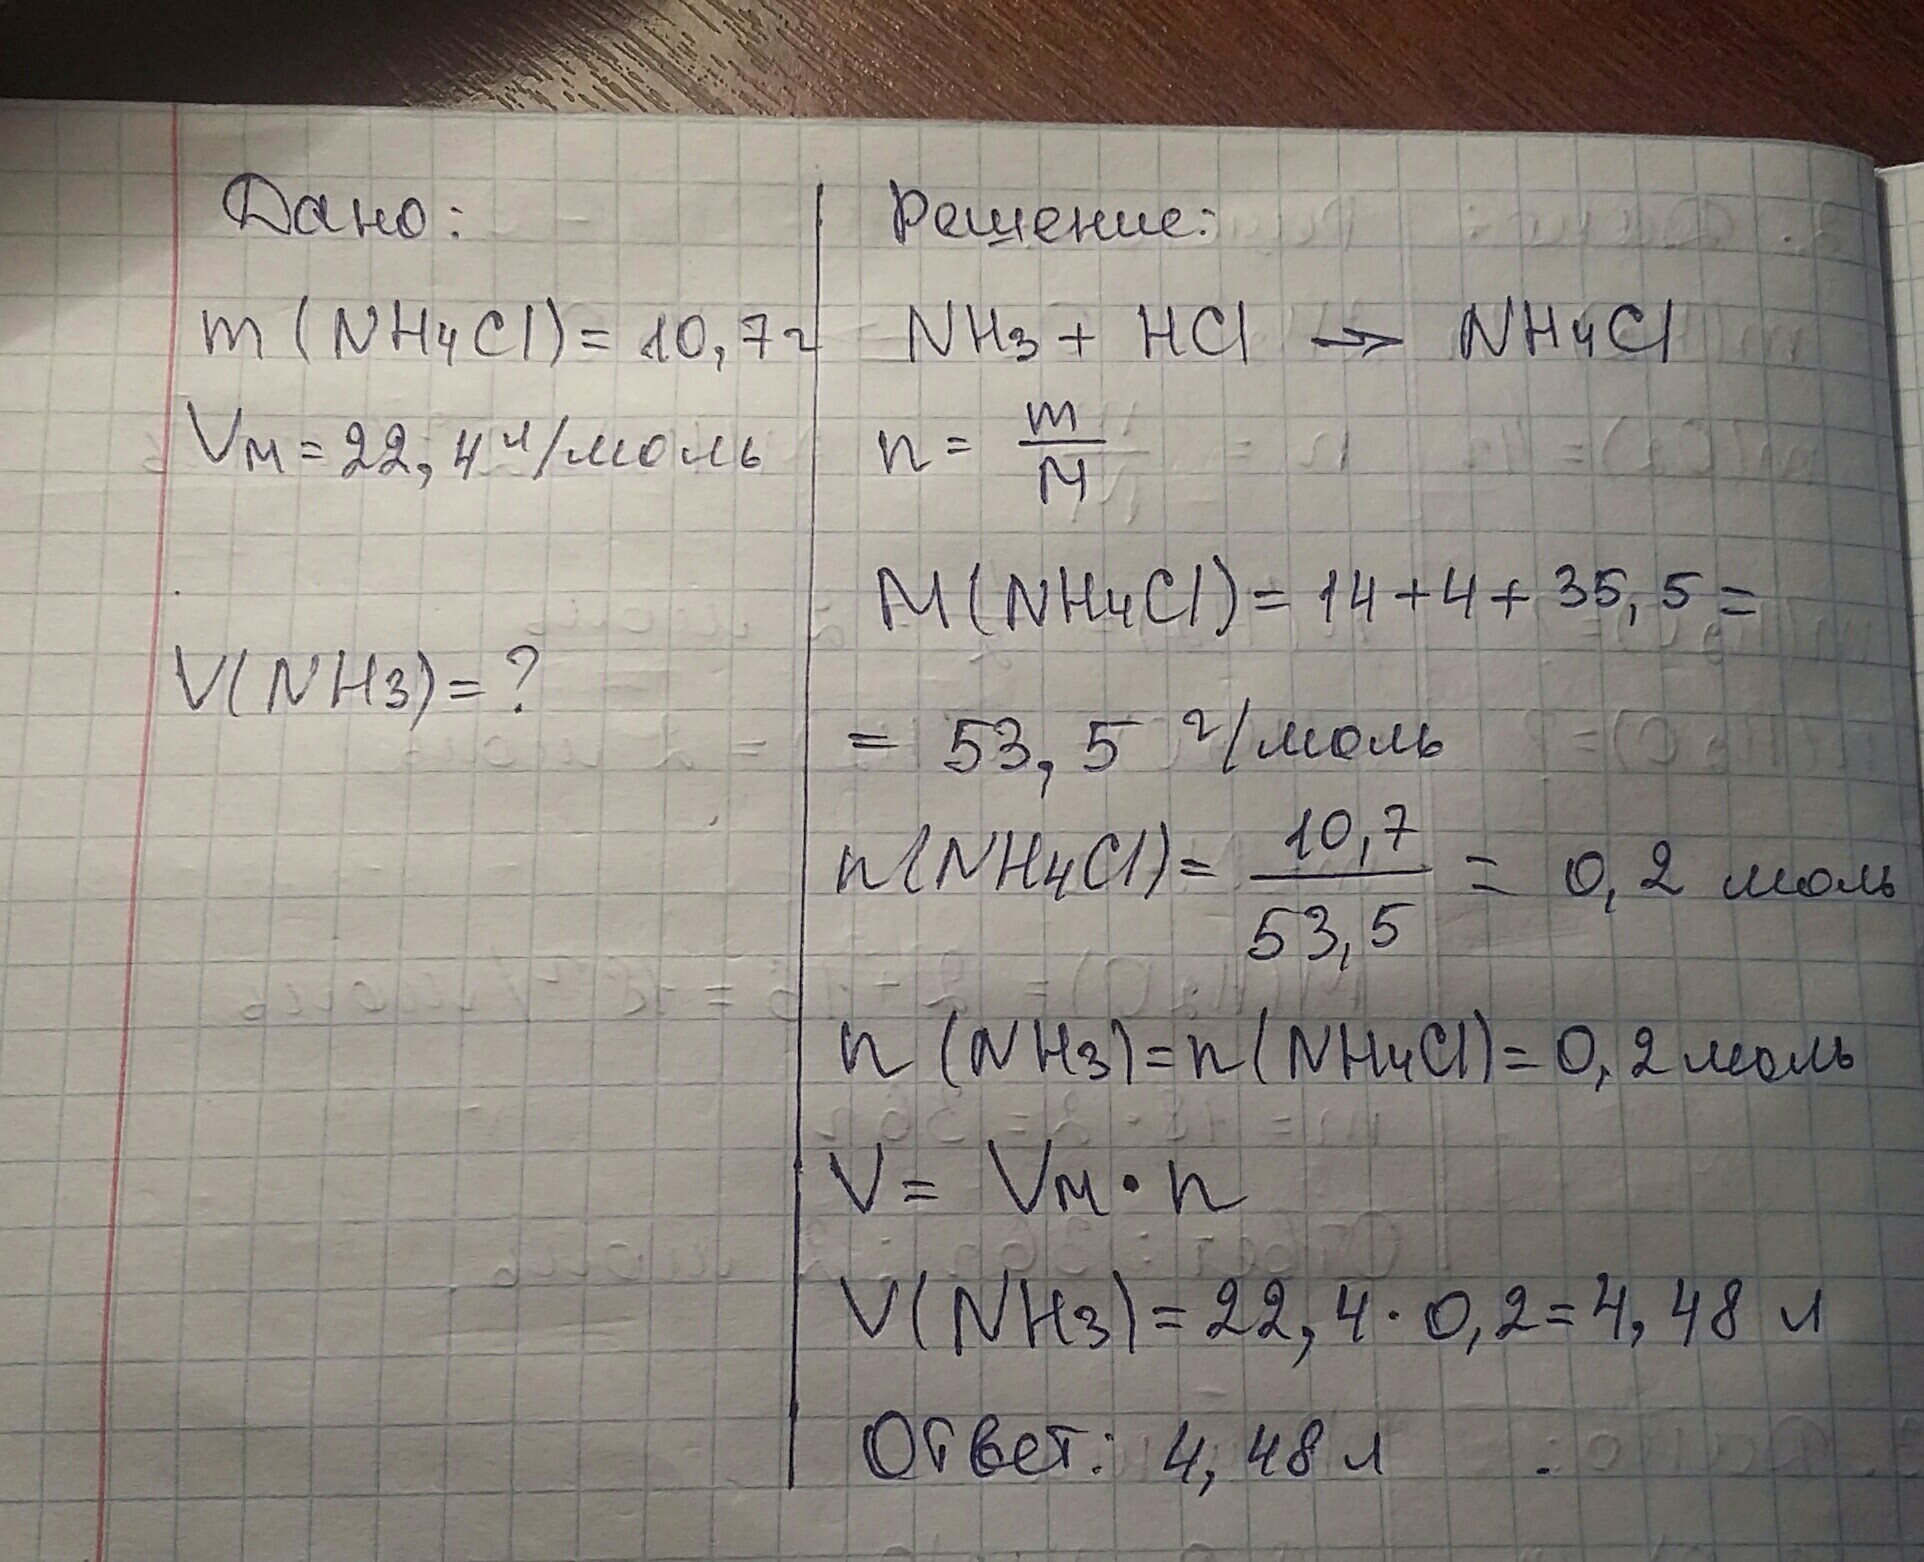 Дано:
m(NH4Cl)=10,7г
Vм=22,4л/моль
V(NH3)=?
Решение:
NH3 + HCl → NH4Cl
n = m/M
M(NH4Cl)=14+4+35,5=
= 53,5 г/моль
n(NH4Cl)= 10,7/53,5 = 0,2 моль
n (NH3)=n(NH4Cl)=0,2 моль
V= Vм·n
V(NH3)=22,4·0,2=4,48 л
Ответ: 4,48 л